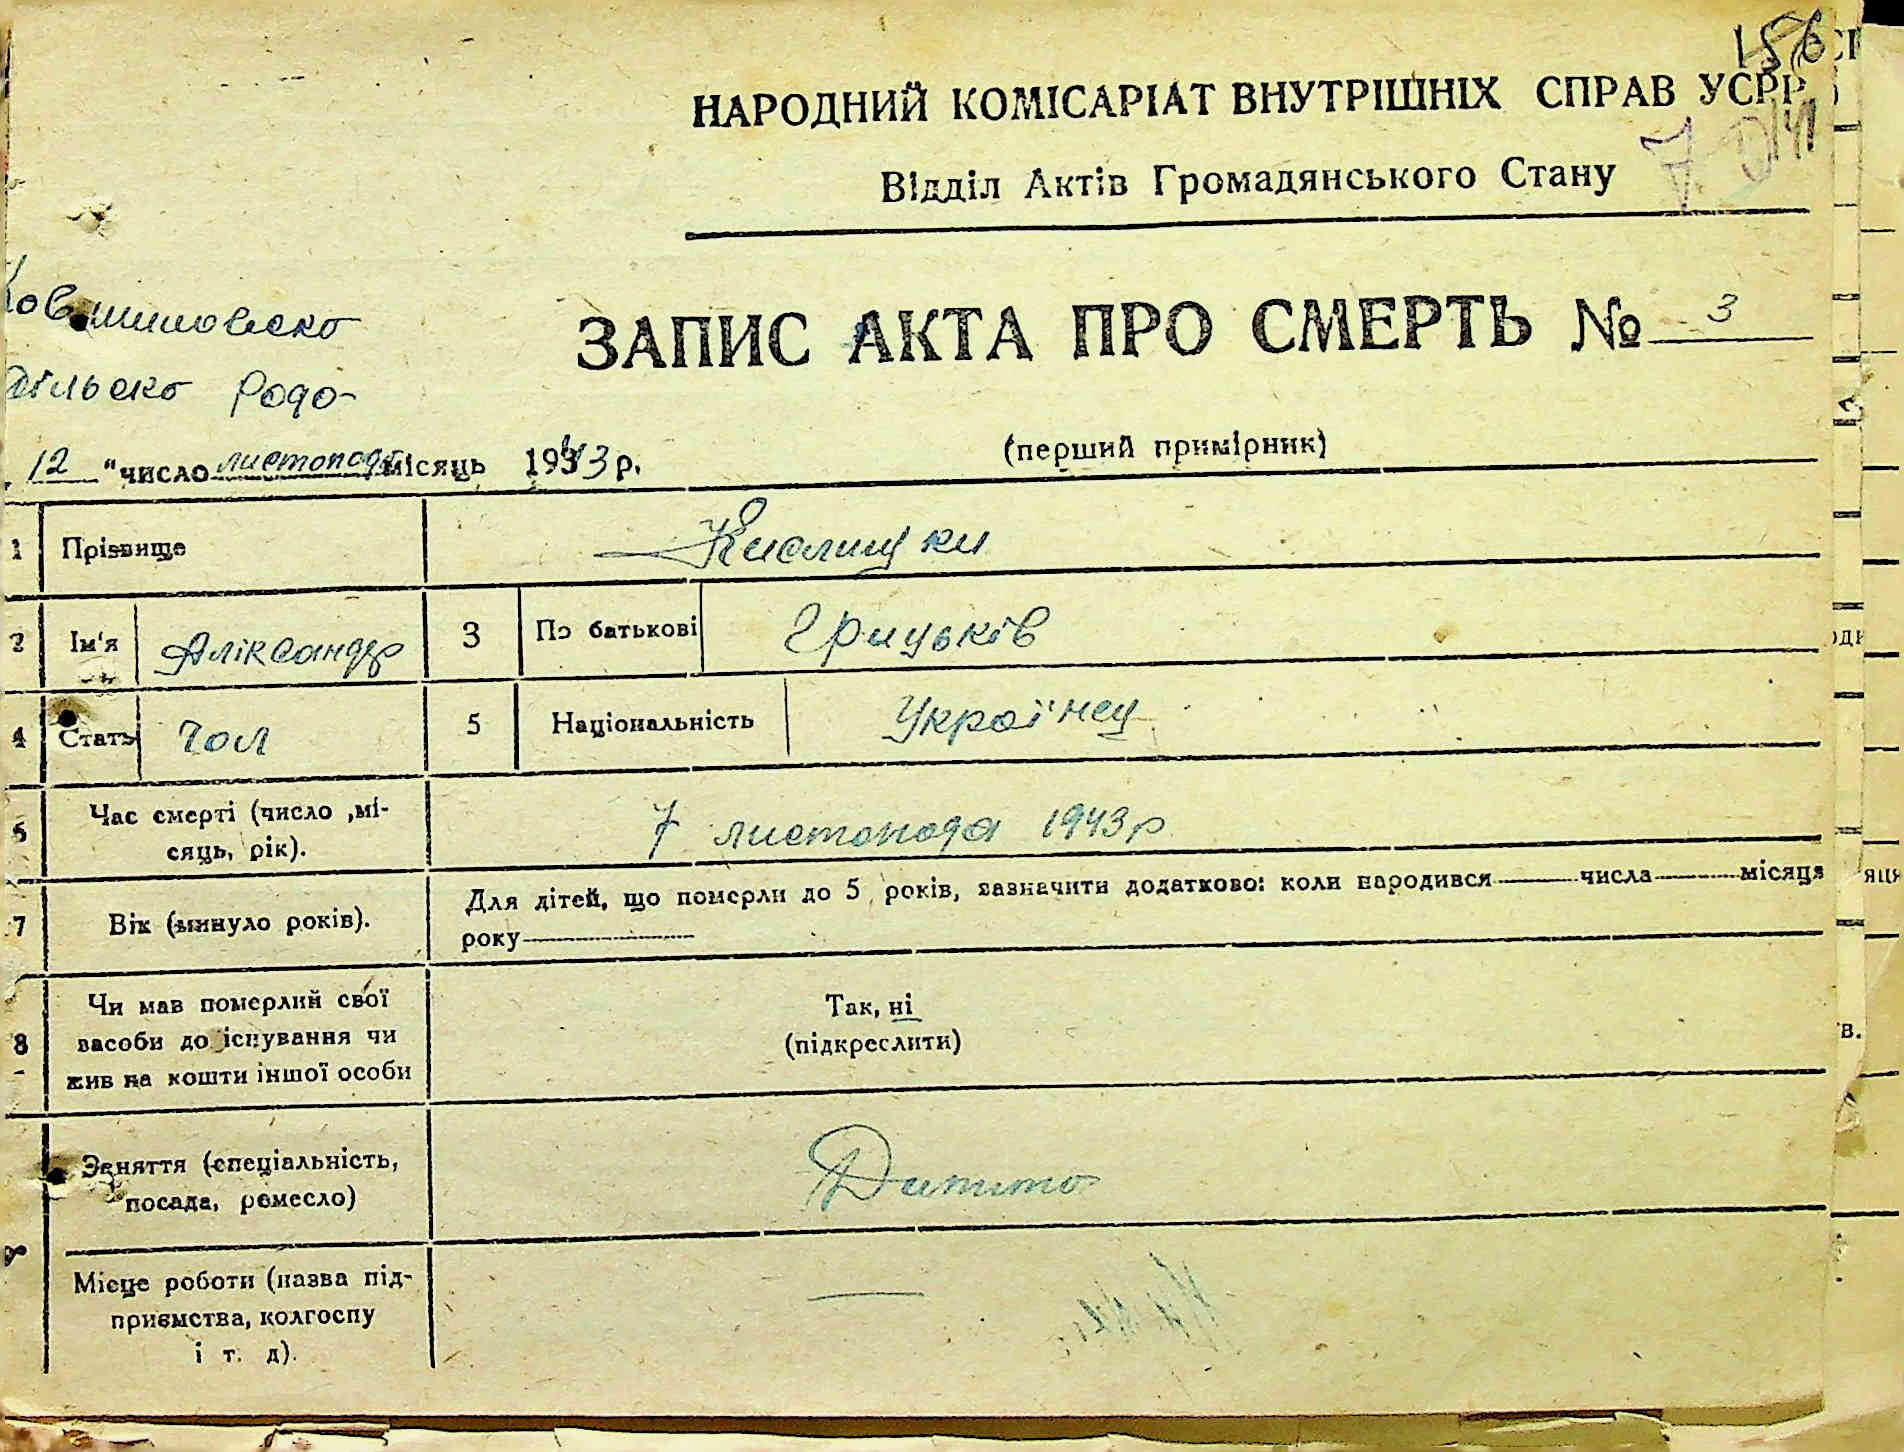 156
НАРОДНИЙ КОМІСАРІАТ ВНУТРІШНІХ СПРАВ УСРР
Відділ Актів Громадянського Стану
ЗАПИС АКТА ПРО СМЕРТЬ № 3
(перший примірник)
12 "число листопода місяць 1943 р.
1 Прізвище Кислицки
2 Ім'я Аліксандр 3 По батькові Грицьків
4 Стать Чол 5 Національність Українец
6 Час смерті (число ,мі-
сяць, рік). 7 листопода 1943 р
7 Вік (минуло років). Для дітей, що померли до 5 років, зазначити додатково: коли народився числа місяця
року
8 Чи мав померлий свої
засоби до існування чи
жив на кошти іншої особи
Так, ні
(підкреслити)
9 Заняття (спеціальність,
посада, ремесло) Дитито
Місце роботи (назва під-
приємства, колгоспу
і т. д). —